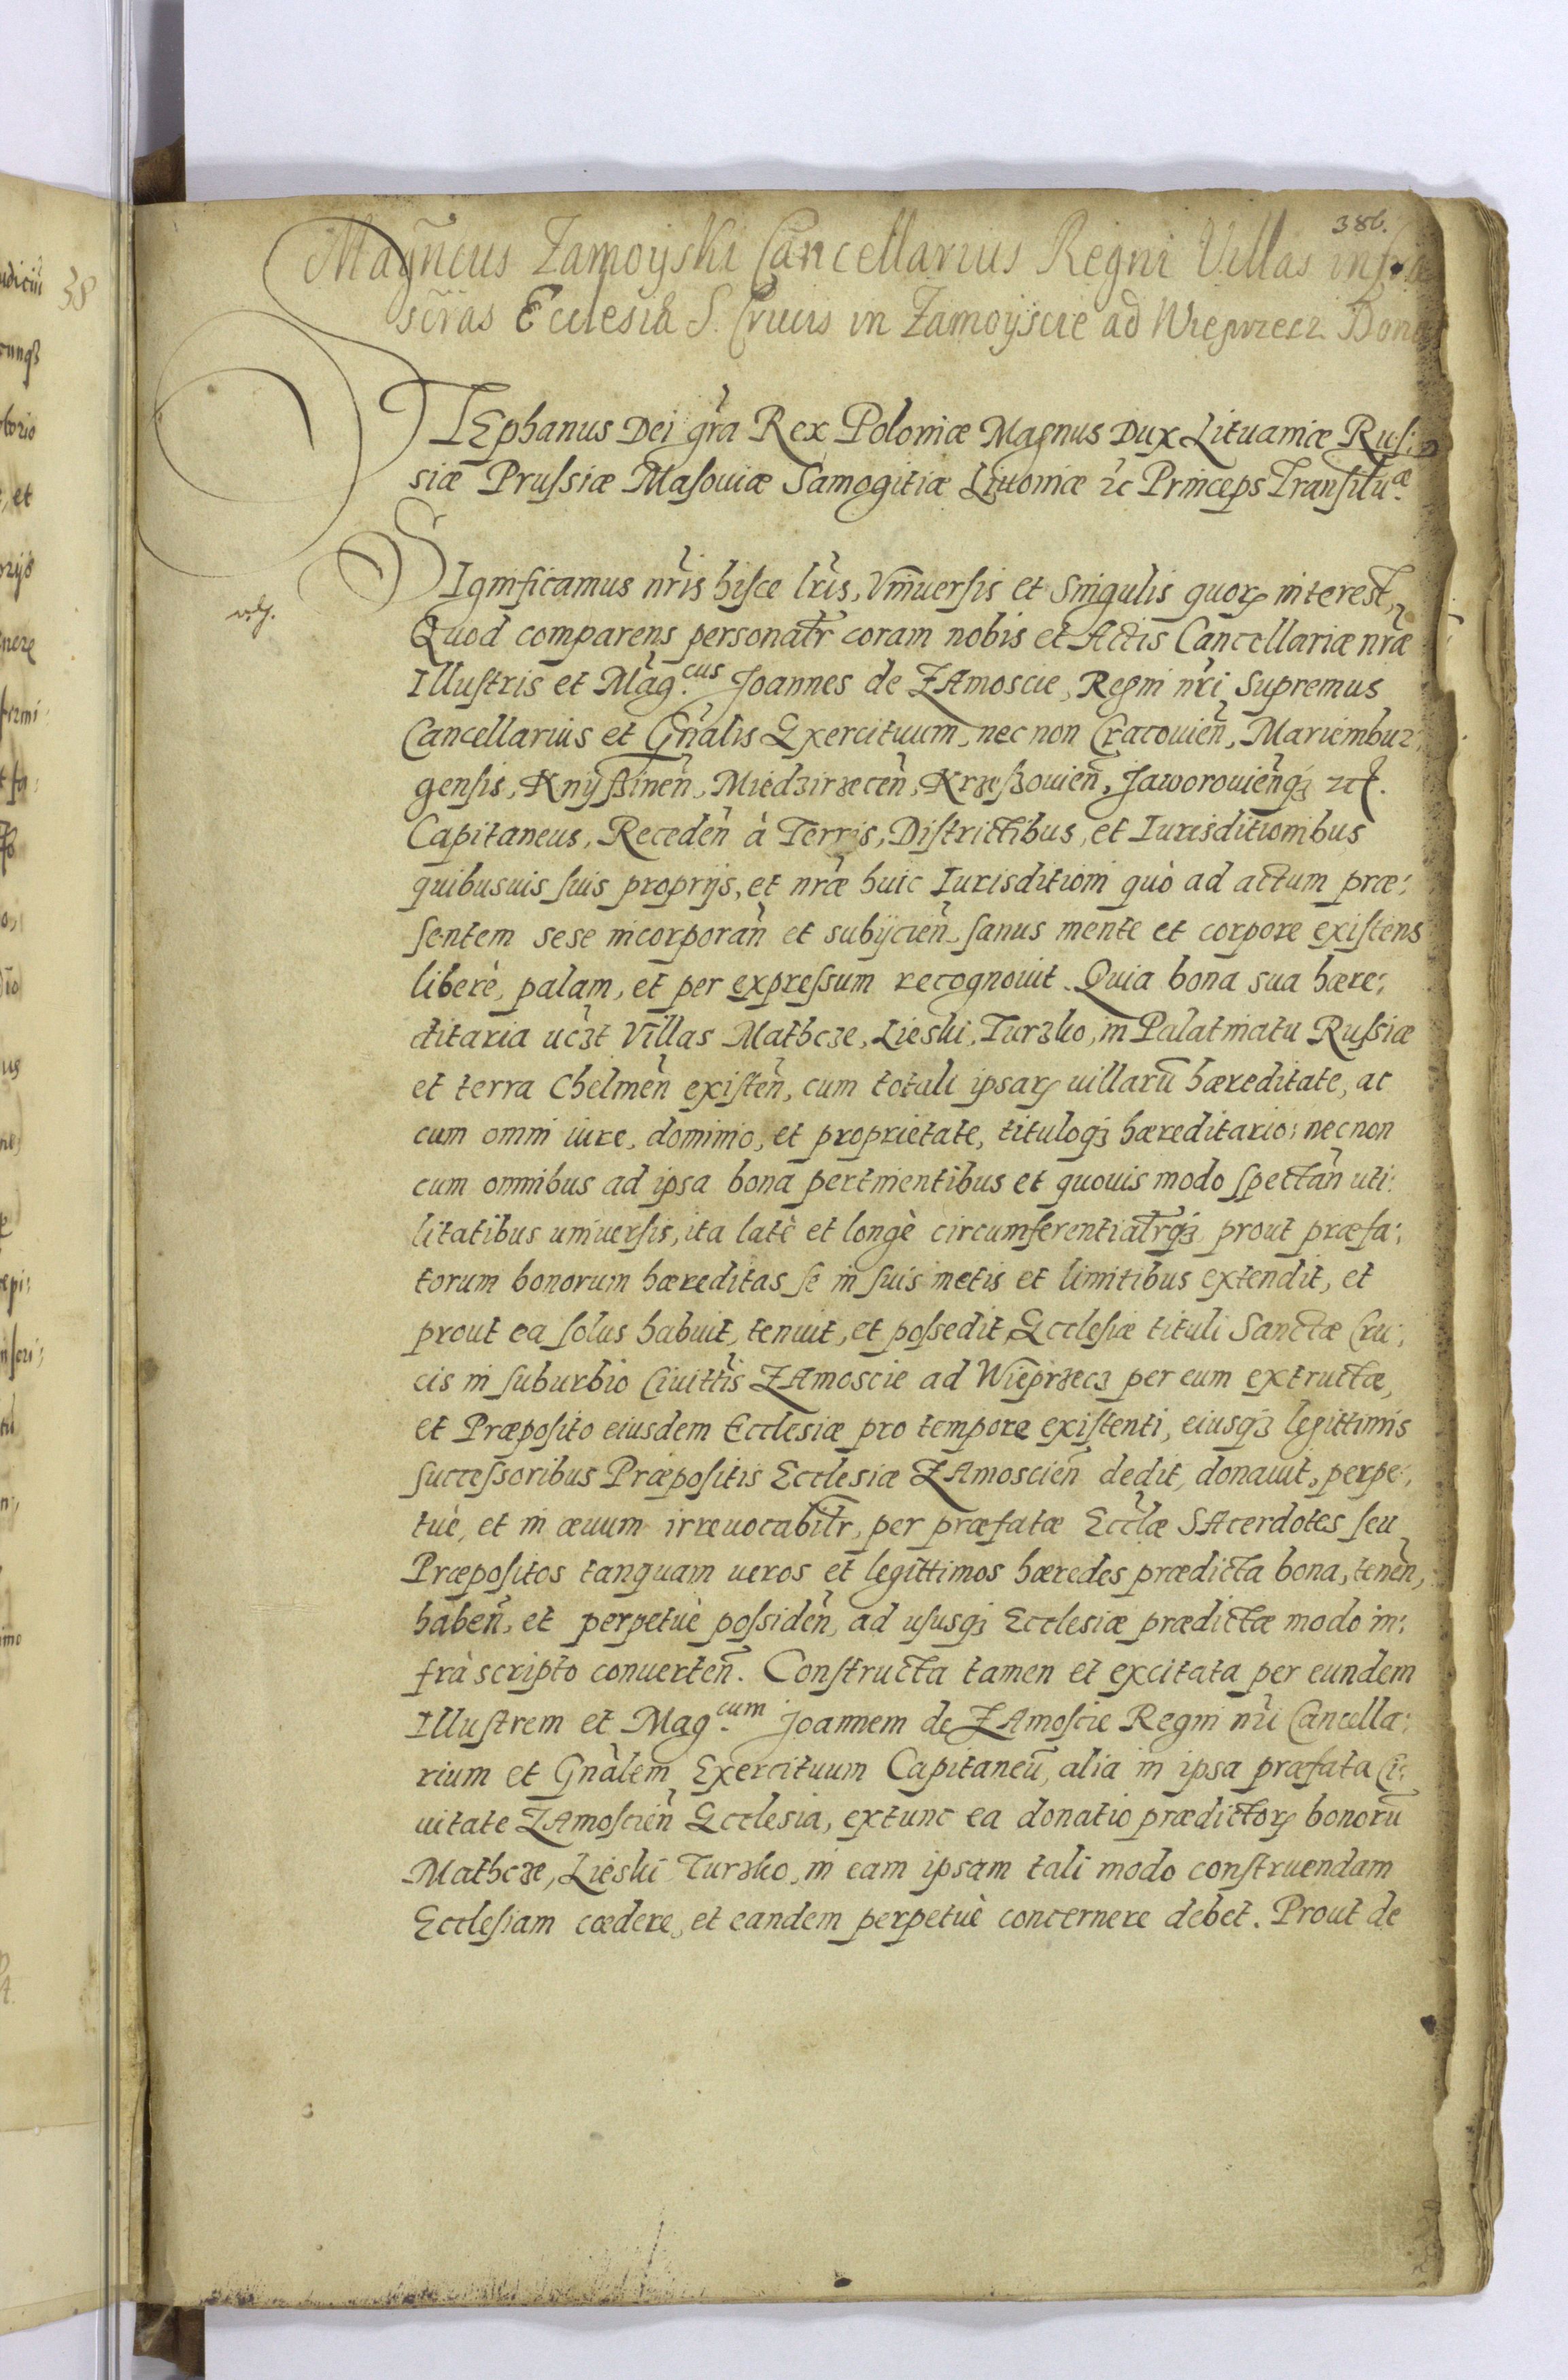 386.
Magñcus Zamoÿski Cancellarius Regni Villas infra
scr̃as Ecclesiæ S. Crucis in Zamoÿscie ad Wieprzecz Dona
STEphanus Dei gr̃a Rex Poloniæ Magnus Dux Lituaniæ Rus:
siæ Prussiæ Masouiæ Samogitiæ Liuoniæ ꝛc Princeps Transilu.æ
SIgnificamus nr̃is hisce lr̃is, Vniuersis et Singulis quorꝝ interest,
Quod comparens personalr̃ coram nobis et Actis Cancellariæ nr̃æ
Illustris et Mag.cus Joannes de ZAmoscie, Regni nr̃i Supremus
Cancellarius et Gñalis Exercituum, nec non Cracouieñ, Mariembur:
gensis, Knÿssineñ, Miedzirzeceñ, Krzeszouieñ, Jaworouieñqꝫ ꝛcꝭ.
Capitaneus, Recedeñ à Terris, Districtibus, et Iurisditionibus
quibusuis suis proprijs, et nr̃æ huic Iurisditioni quò ad actum præ:
sentem sese incorporañ et subijcieñ, sanus mente et corpore existens
liberè, palam, et per expressum recognouit. Quia bona sua hære:
ditaria uczt Villas Mathcze, Lieski, Turzko, in Palatinatu Russiæ
et terra Chelmeñ existeñ, cum totali ipsarꝝ uillarū hæreditate, ac
cum omni iure, dominio, et proprietate, tituloqꝫ hæreditario: nec non
cum omnibus ad ipsa bona pertinentibus et quouis modo spectañ uti:
litatibus uniuersis, ita latè et longè circumferentialr̃qꝫ prout præfa:
torum bonorum hæreditas se in suis metis et limitibus extendit, et
prout ea solus habuit, tenuit, et possedit, Ecclesiæ tituli Sanctæ Cru:
cis in suburbio Ciuittĩs ZAmoscie ad Wieprzecz per eum extructæ,
et Præposito eiusdem Ecclesiæ pro tempore existenti, eiusqꝫ legittimis
successoribus Præpositis Ecclesiæ ZAmoscieñ dedit, donauit, perpe:
tuè, et in æuum irreuocabilr̃, per præfatæ Eccl̃æ SAcerdotes seu
Præpositos tanquam ueros et legittimos hæredes prædicta bona, teneñ,
habeñ, et perpetuè possideñ, ad ususqꝫ Ecclesiæ prædictæ modo in:
frà scripto conuerteñ. Constructa tamen et excitata per eundem
Illustrem et Mag.cum Joannem de ZAmoscie Regni nr̃i Cancella:
rium et Gñalem Exercituum Capitaneū, alia in ipsa præfata Ci:
uitate ZAmoscieñ Ecclesia, extunc ea donatio prædictorꝝ bonorū
Mathcze, Lieski Turzko, in eam ipsam tali modo construendam
Ecclesiam cædere, et eandem perpetuè concernere debet. Prout de